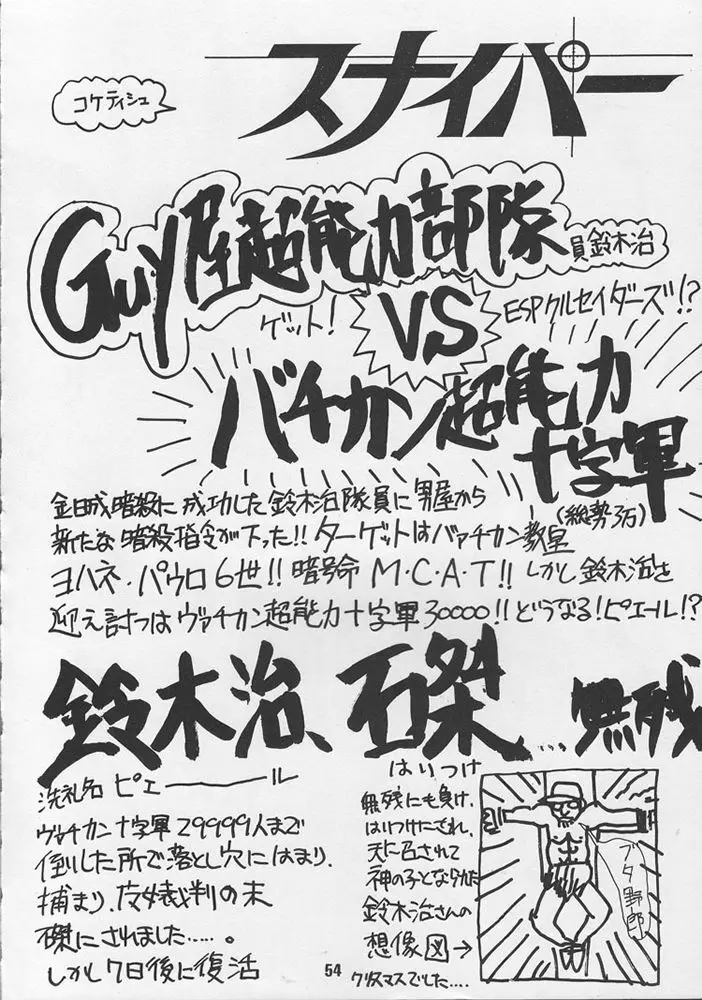 コケティシュ
スナイパー
Guy屋超能力部隊
員鈴木治
ゲット!
VS
ESPクルセイダーズ!?
バチカン超能力
十字軍
(総勢3万)
金日成暗殺に成功した鈴木治隊員に男屋から
新たな暗殺指令が下った!!ターゲットはバァチカン教皇
ヨハネ・パウロ6世!!暗号命M・C・A・T!!しかし鈴木治を
迎え討つはヴァチカン超能力十字軍30000!!どうなる!ピエール!?
鈴木治、石桀…無残
はりつけ
洗礼名ピエール
ヴァチカン十字軍29999人まで
倒した所で落とし穴にはまり、
捕まり、魔女裁判の末
磔にされました……。
しかし7日後に復活
無残にも負け、
はりつけにされ、
天に召されて
神の子となられた
鈴木治さんの
想像図→
クリスマスでした....
ブタ野郎
54